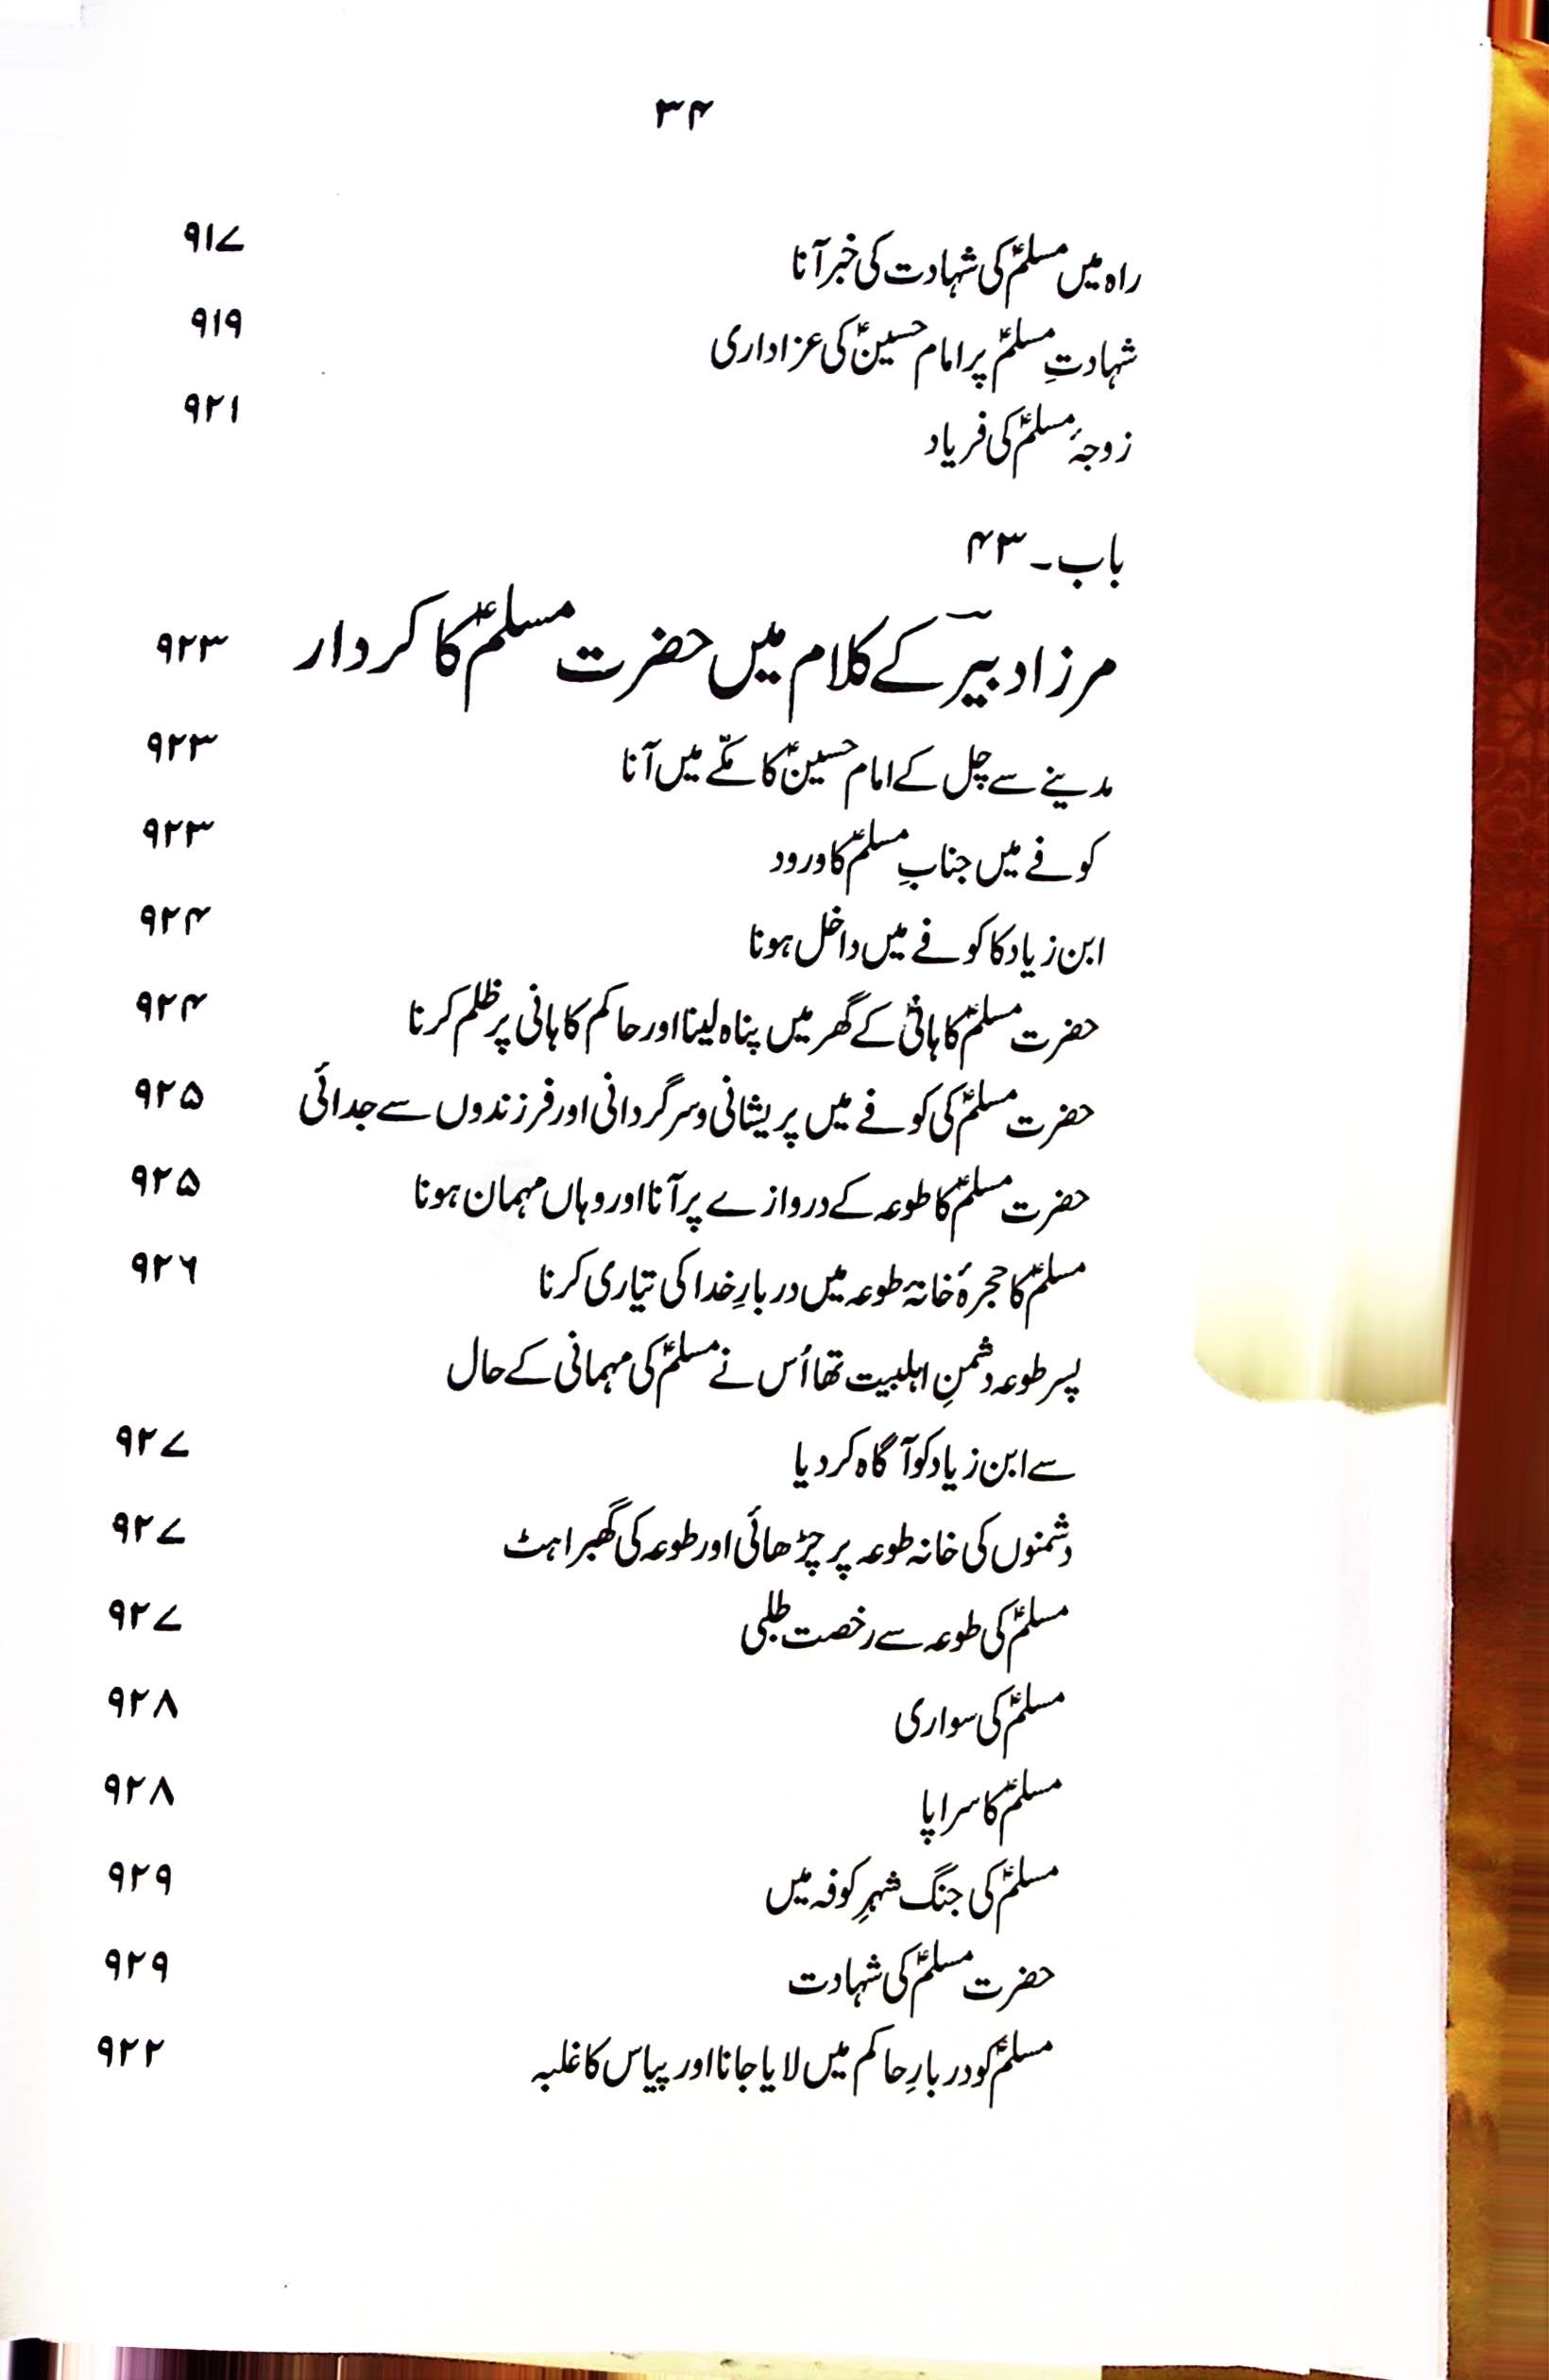 ۳۴
راہ میں مسلمؑ کی شہادت کی خبر آنا ۹۱۷
شہادتِ مسلمؑ پر امام حسینؑ کی عزاداری ۹۱۹
زوجۂ مسلمؑ کی فریاد ۹۲۱
باب۔۴۳
مرزا دبیرؔ کے کلام میں حضرت مسلمؑ کا کردار ۹۲۳
مدینے سے چل کے امام حسینؑ کا مکّے میں آنا ۹۲۳
کوفے میں جنابِ مسلمؑ کا ورود ۹۲۳
ابن زیاد کا کوفے میں داخل ہونا ۹۲۴
حضرت مسلمؑ کا ہانیؓ کے گھر میں پناہ لینا اور حاکم کا ہانی پر ظلم کرنا ۹۲۴
حضرت مسلمؑ کی کوفے میں پریشانی و سرگردانی اور فرزندوں سے جدائی ۹۲۵
حضرت مسلمؑ کا طوعہ کے دروازے پر آنا اور وہاں مہمان ہونا ۹۲۵
مسلمؑ کا حجرۂ خانۂ طوعہ میں دربارِ خدا کی تیاری کرنا ۹۲۶
پسر طوعہ دشمنِ اہلبیت تھا اُس نے مسلمؑ کی مہمانی کے حال
سے ابن زیاد کو آگاہ کر دیا ۹۲۷
دشمنوں کی خانہ طوعہ پر چڑھائی اور طوعہ کی گھبراہٹ ۹۲۷
مسلمؑ کی طوعہ سے رخصت طلبی ۹۲۷
مسلمؑ کی سواری ۹۲۸
مسلمؑ کا سراپا ۹۲۸
مسلمؑ کی جنگ شہرِ کوفہ میں ۹۲۹
حضرت مسلمؑ کی شہادت ۹۲۹
مسلمؑ کو دربارِ حاکم میں لایا جانا اور پیاس کا غلبہ ۹۲۲